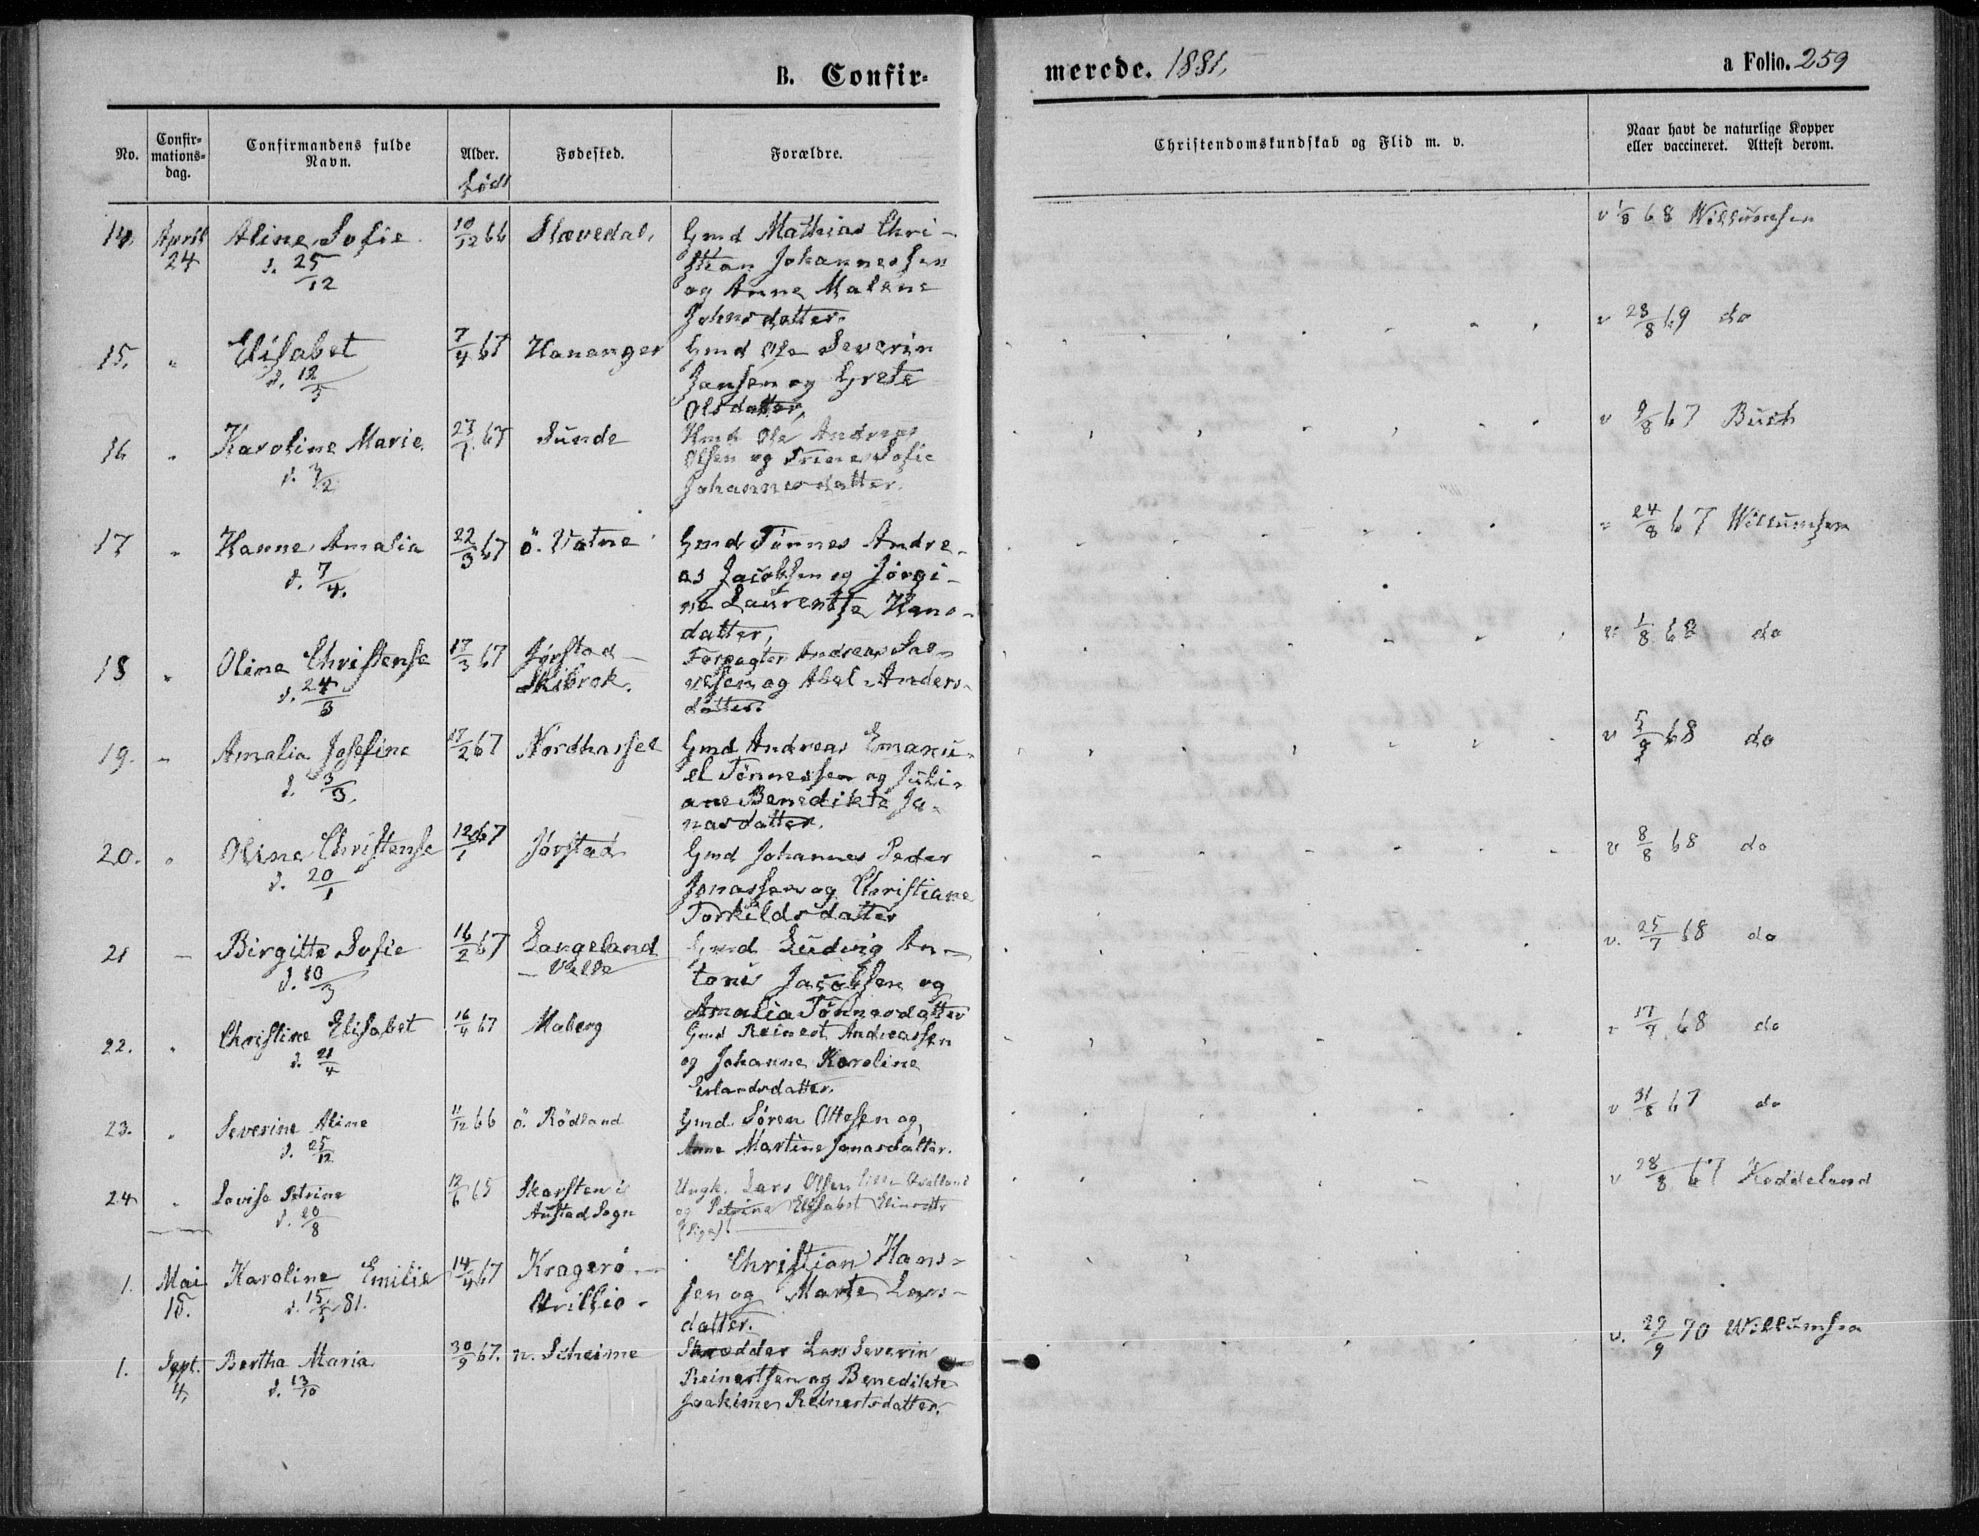 B. Confir-
merede. 1881.
a Folio. 259
No.
Confir-
mations-
dag.
Confirmandens fulde
Navn.
Alder.
født
Fødested.
Forældre.
Christendomskundskab og Flid m. v.
Naar havt de naturlige Kopper
eller vaccineret. Attest derom.
14. April Aline Sofie 10/12 66 Slævedal, Gmd Mathias Chri-
24 d. 25/12 stian Johannessen
og Anne Malene
Johnsdatter.
v 1/8 68 Willumsen
15. " Elisabet 7/4 67 Hananger Gmd Ole Severin
d. 12/5 Jansen og Grete
Olsdatter,
v 23/8 69 do
16 " Karoline Marie 27/1 67 Sunde Hmd Ole Andreas
d. 3/2 Olsen og Trine Sofie
Johannesdatter.
v 9/8 67 Buch
17 " Hanne Amalia 22/3 67 ö. Vatne Gmd Tønnes Andre-
d. 7/4. as Jacobsen og Jørgi-
ne Laurentse Hans-
datter,
" 24/8 67 Willumsen
18 " Oline Christense 17/3 67 Jørstad- Forpagter Andreas Sal-
d. 24/3 Skibrok. vesen og Abel Anders-
datter.
v 1/8 68 do
19. " Amalia Josefine 17/2 67 Nordhassel Gmd Andreas Emanu-
d. 3/3. el Tønnessen og Juli-
ane Benedikte Jo-
nasdatter.
v 5/9 68 do
20. " Oline Christense 12/1 67 Jørstad Gmd Johannes Peder
d. 20/1 Jonassen og Christiane
Torkildsdatter
v 8/8 68 do
21 - Birgitte Sofie 16/2 67 Langeland Gmd Ludvig An-
d. 10/3 - Velle toni Jacobsen og
Amalia Tønnesdatter
v. 25/7 68 do
22. " Christine Elisabet 16/4 67 Maberg Gmd Reinert Andreassen
d. 21/4 og Johanne Karoline
Erlandsdatter.
" 17/7 68 do
23. " Severine Aline 11/12 66 ö. Rödland Gmd Søren Ottesen og
d. 25/12 Anne Martine Jonasdatter.
v 31/8 67 do
24 " Lovise Petrine 12/6 65 Skarsten i Ungk. Lars Olsen
d. 20/8 Austad Sogn og Petrine Elisabet
(Pige)
v 28/8 67 Haddeland
1. Mai Karoline Emilie 14/4 67 Kragerö - Christian Hans-
15. d. 15/5 81. sen og Marte Lars-
datter.
1. Sept. Bertha Maria 30/9 67. n. Scheime Skrædder Lars Severin
4, d. 13/10 Reinertsen og Benedikte
Joakime Reinertsdatter.
v. 29/9 70 Willumsen